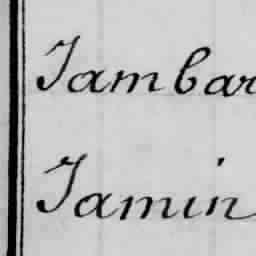 Jambar
Jamin